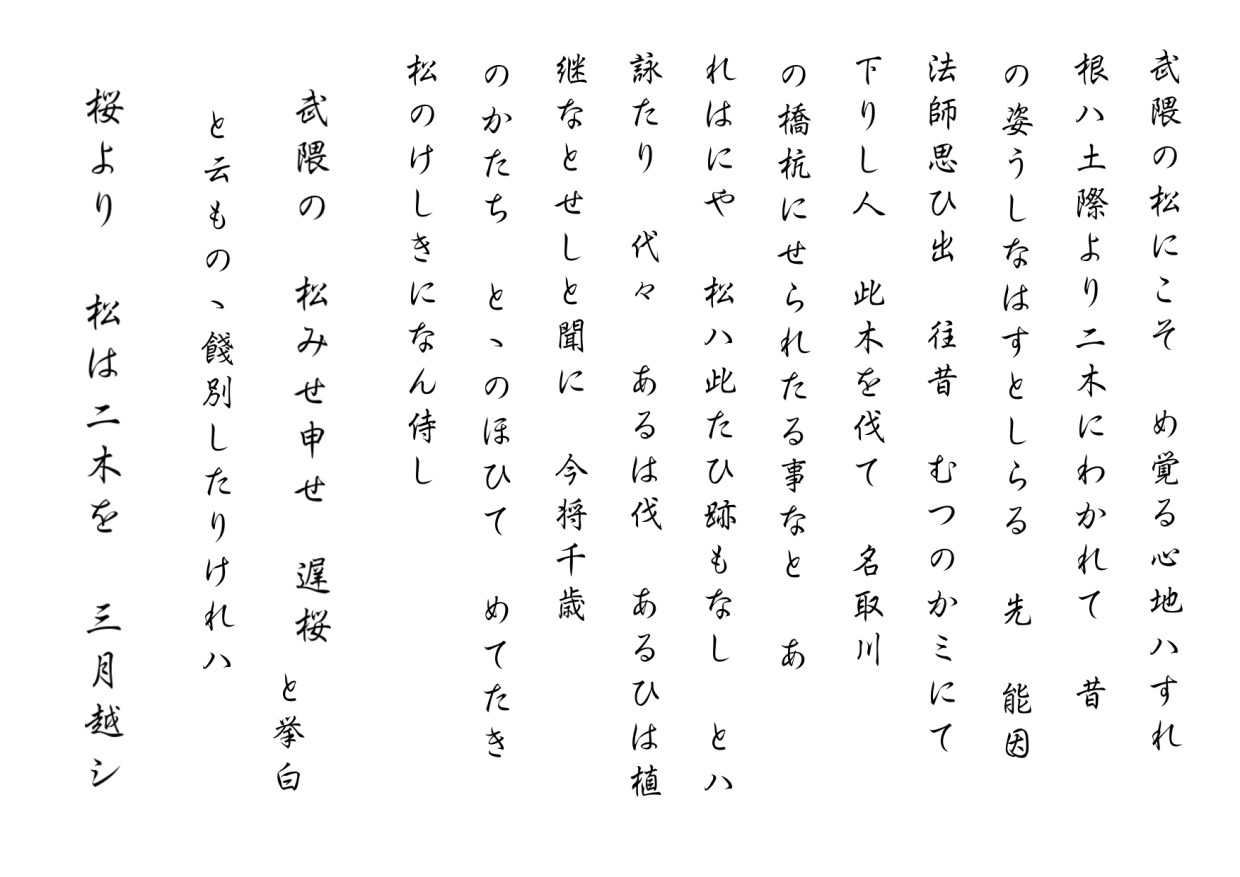 武隈の松にこそ　め覚る心地ハすれ
根ハ土際より二木にわかれて　昔
の姿うしなはすとしらる　先　能因
法師思ひ出　往昔　むつのかミにて
下りし人　此木を伐て　名取川
の橋杭にせられたる事なと　あ
れはにや　松ハ此たひ跡もなし　とハ
詠たり　代々　あるは伐　あるひは植
継なとせしと聞に　今将千歳
のかたち　とヽのほひて　めてたき
松のけしきになん侍し
武隈の　松みせ申せ　遅桜　と挙白
と云ものヽ餞別したりけれハ
桜より　松は二木を　三月越シ